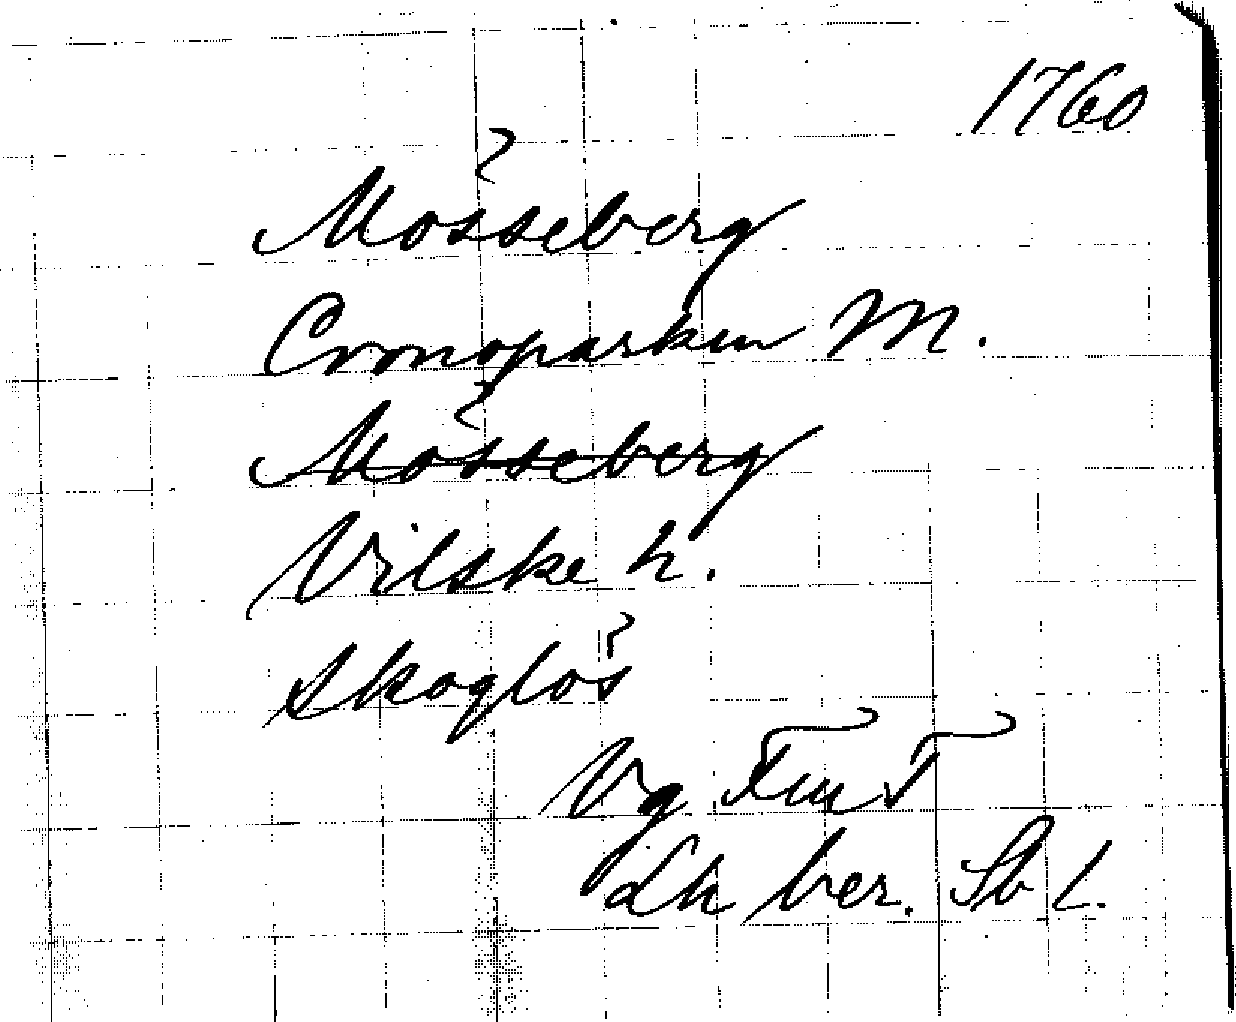 1760
Mosseberg
Cronoparken M.
Mosseberg
Vilske h.
Skoglos
Vg
Lh ber. Sb 1.